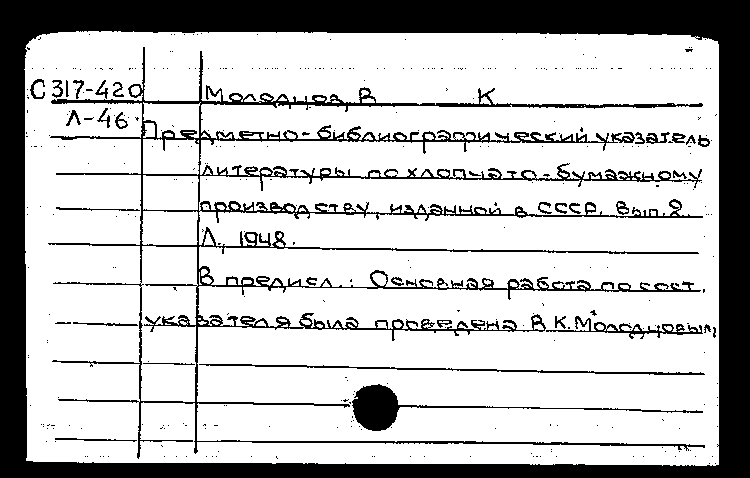 С317-420 Молодцов, В К
Л-46 Предметно-библиографический указатель
литературы по хлопчато-бумажному
производству, изданной в СССР. Вып.2.
Л., 1948.
В предисл.: Основная работа по сост.
указателя была проведена В.К.Молодцовым,